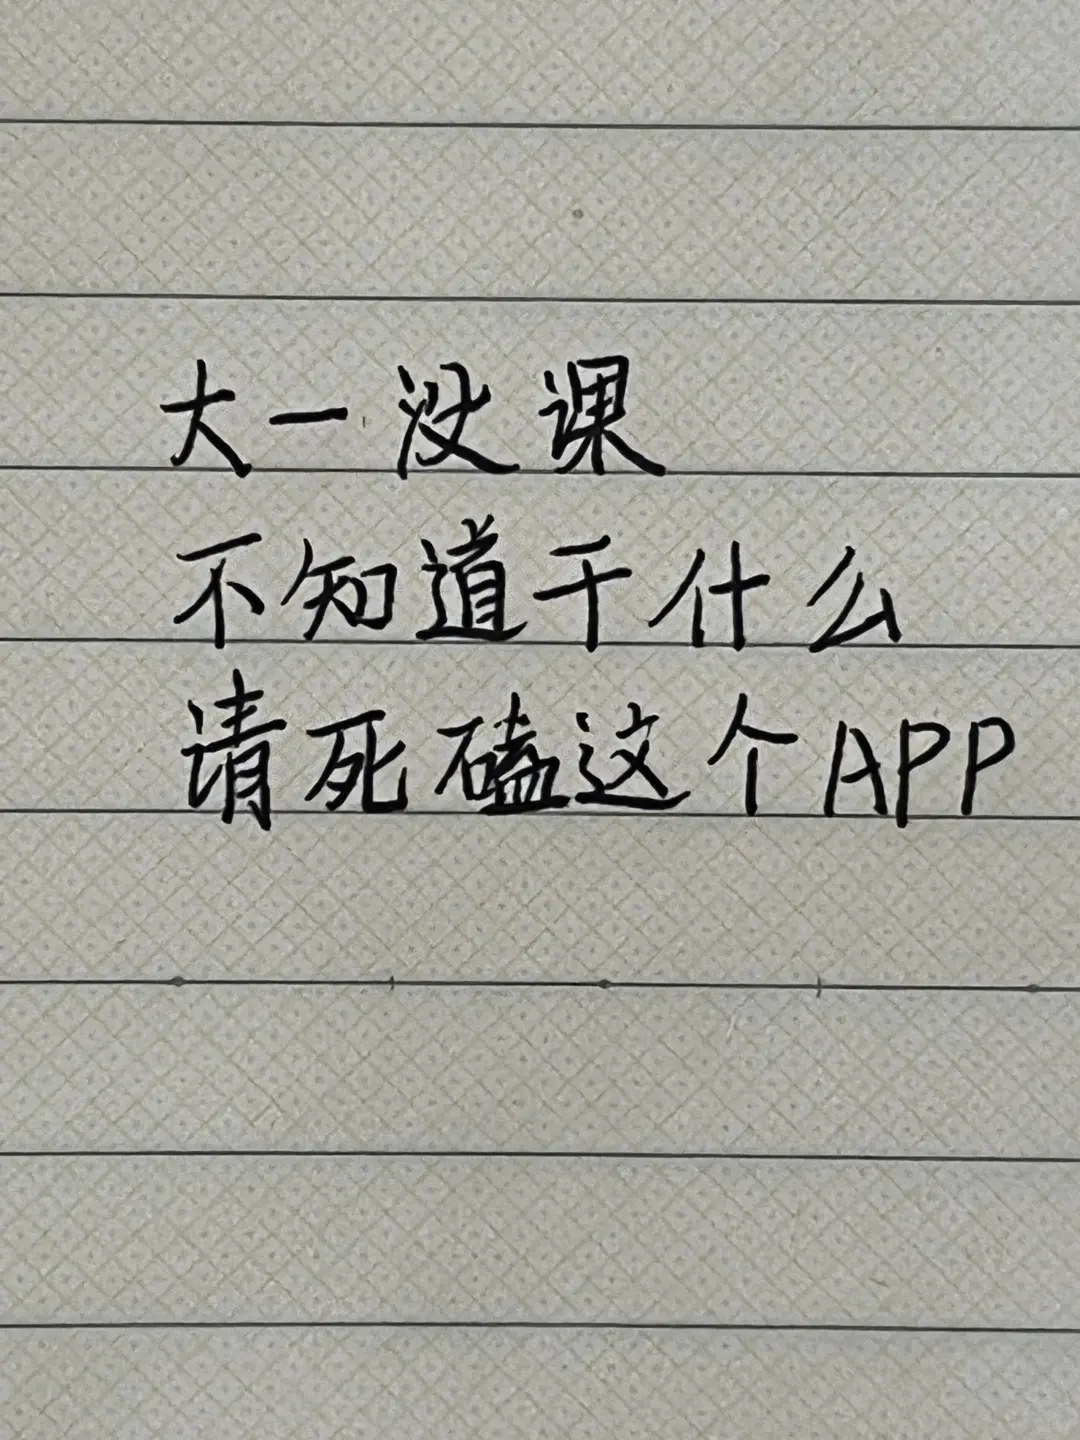 大一没课
不知道干什么
请死磕这个APP